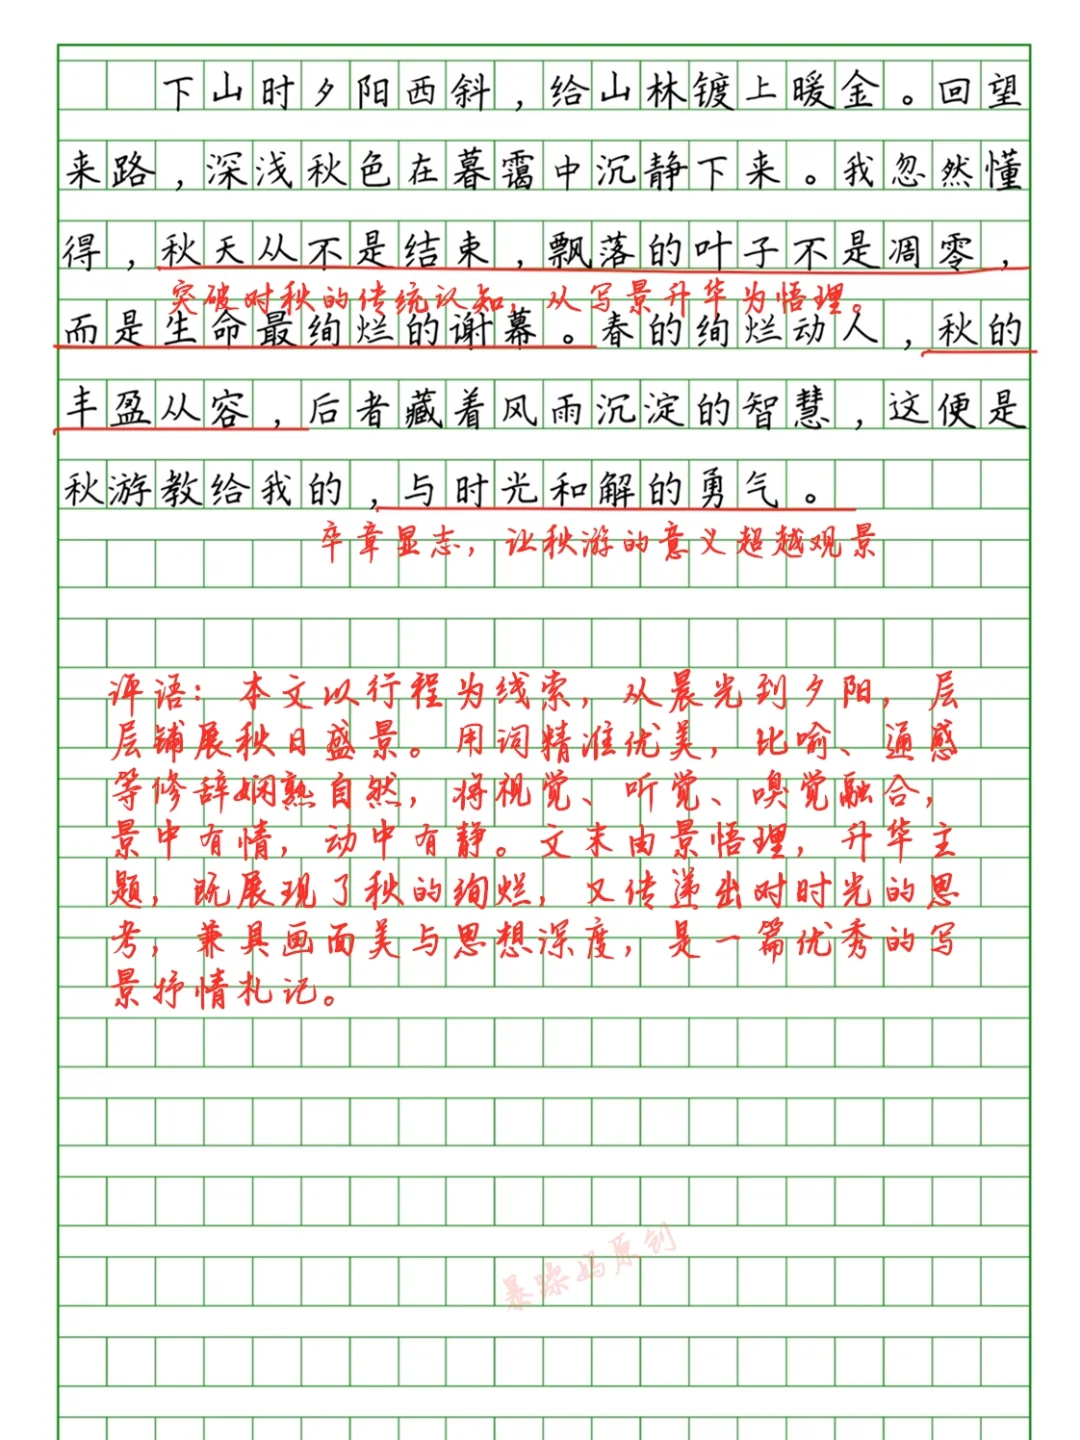 下山时夕阳西斜，给山林镀上暖金。回望
来路，深浅秋色在暮霭中沉静下来。我忽然懂
得，秋天从不是结束，飘落的叶子不是凋零，
突破对秋的传统认知，从写景升华为悟理。
而是生命最绚烂的谢幕。春的绚烂动人，秋的
丰盈从容，后者藏着风雨沉淀的智慧，这便是
秋游教给我的，与时光和解的勇气。
卒章显志，让秋游的意义超越观景
评语：本文以行程为线索，从晨光到夕阳，层
层铺展秋日盛景。用词精准优美，比喻、通感
等修辞娴熟自然，将视觉、听觉、嗅觉融合，
景中有情，动中有静。文末由景悟理，升华主
题，既展现了秋的绚烂，又传递出对时光的思
考，兼具画面美与思想深度，是一篇优秀的写
景抒情札记。
暴躁妈原创